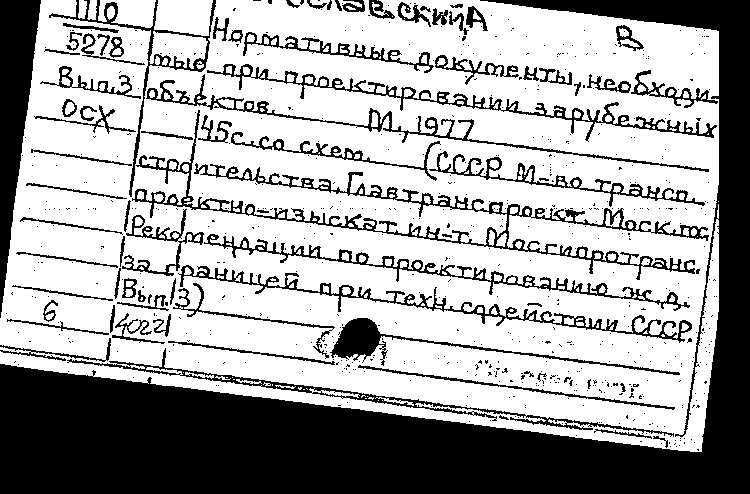 1110 ...рославский, А В
5278 Нормативные документы, необходи-
Вып.3 мые при проектировании зарубежных
ОСХ объектов. М., 1977
45с. со схем. (СССР. М-во трансп.
строительства. Главтранспроект. Моск. гос.
проектно-изыскат. ин-т. Мосгипротранс.
Рекомендации по проектированию ж.д.
за границей при техн. содействии СССР.
Вып. 3)
6, 4022